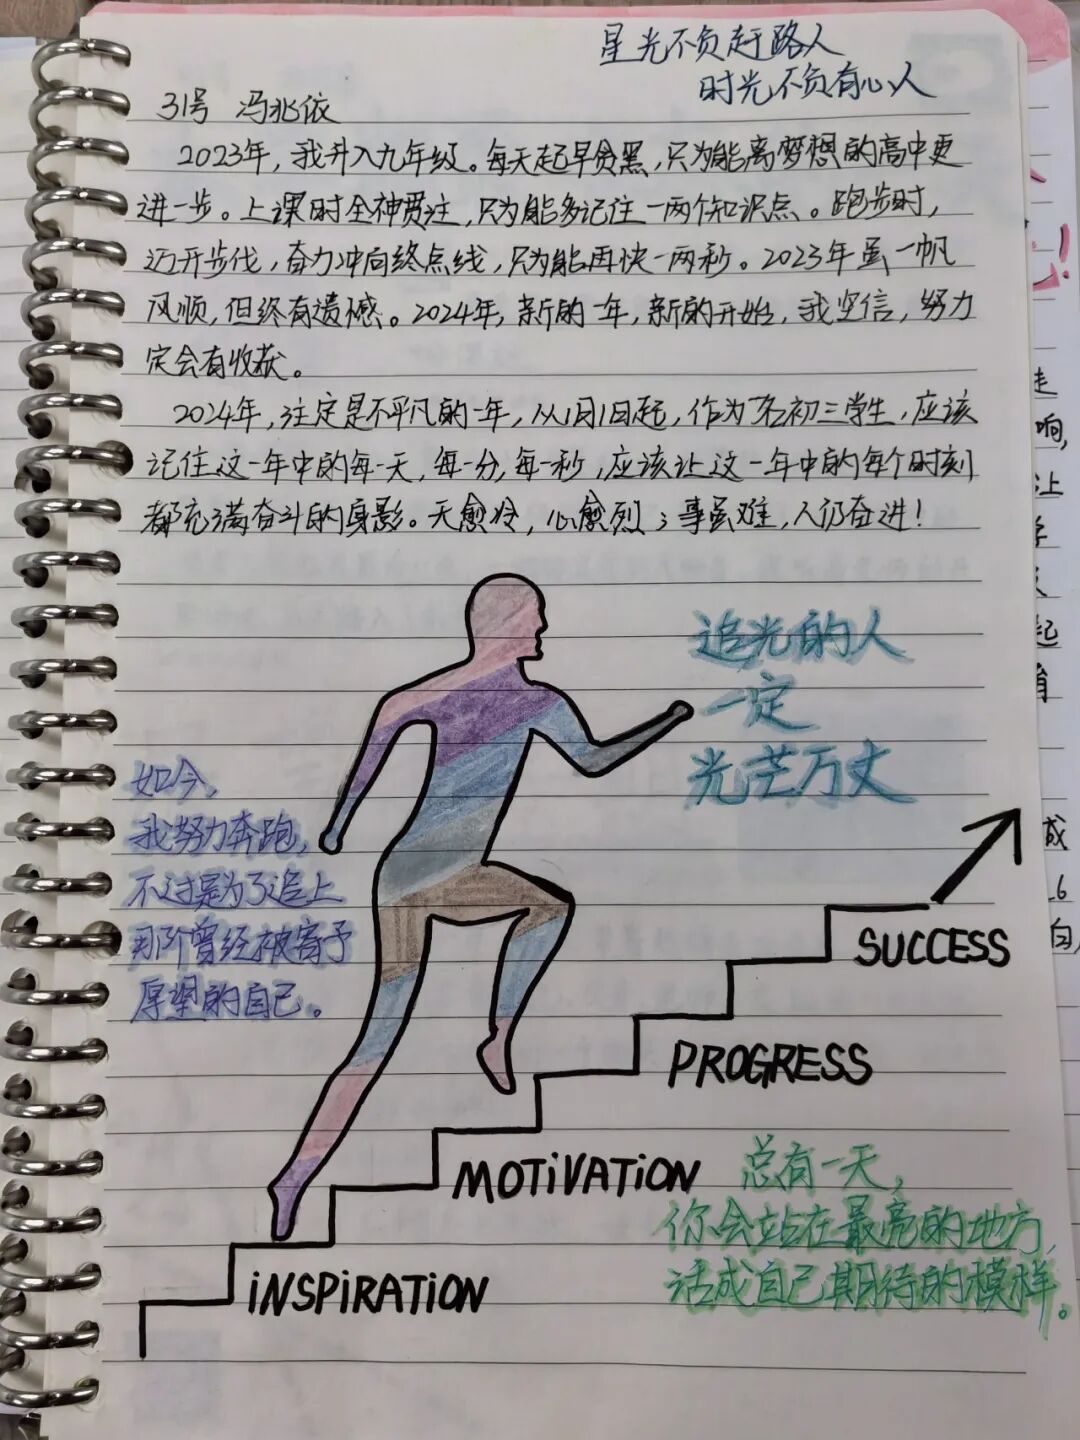 星光不负赶路人
时光不负有心人
31号 冯兆依
2023年，我升入九年级。每天起早贪黑，只为能离梦想的高中更
进一步。上课时全神贯注，只为能多记住一两个知识点。跑步时，
迈开步伐，奋力冲向终点线，只为能再快一两秒。2023年虽一帆
风顺，但终有遗憾。2024年，新的一年，新的开始，我坚信，努力
定会有收获。
2024年，注定是不平凡的一年，从1月1日起，作为一名初三学生，应该
记住这一年中的每一天，每一分，每一秒，应该让这一年中的每个时刻
都充满奋斗的身影。天愈冷，心愈烈；事虽难，人仍奋进！
追光的人
一定
光芒万丈
如今，
我努力奔跑，
不过是为了追上
那阶曾经被寄予
厚望的自己。
SUCCESS
PROGRESS
MOTiVATiON
iNSPiRATiON
总有一天，
你会站在最亮的地方，
活成自己期待的模样。